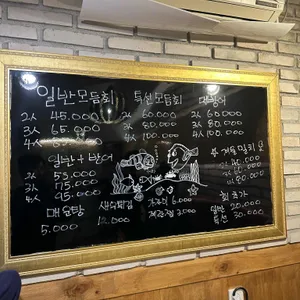 일반모듬회
2人 45.000
3人 65.000
4人
일반 + 방어
2人 55.000
3人 75.000
4人 95.000
매운탕
5.000
특선모듬회
2人 60.000
3人 80.000
4人 100.000
새우튀김
12.000
대방어
2人 60.000
3人 80.000
4人 100.000
40.000
60.000
80.000
6.000
2.000
회 추가
일반 20.000
특선 30.000